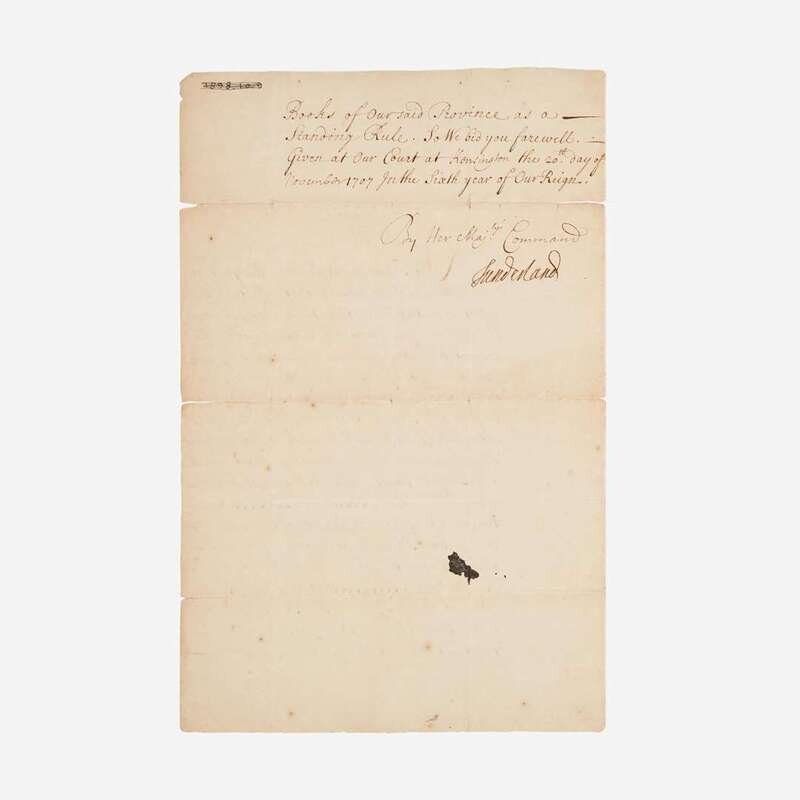 Books of Our said Province as a
Standing Rule. So We bid you farewell.
Given at Our Court at Kensington the 20th. day of
November 1707 In the Sixth year of Our Reign.
By Her Majtys Command
Sunderland